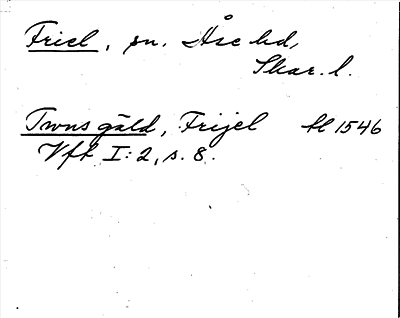 Friel, sn. Åse hd,
Skar. l.
Twns gäld, Frijel hl 1546
Vft I:2, s. 8.